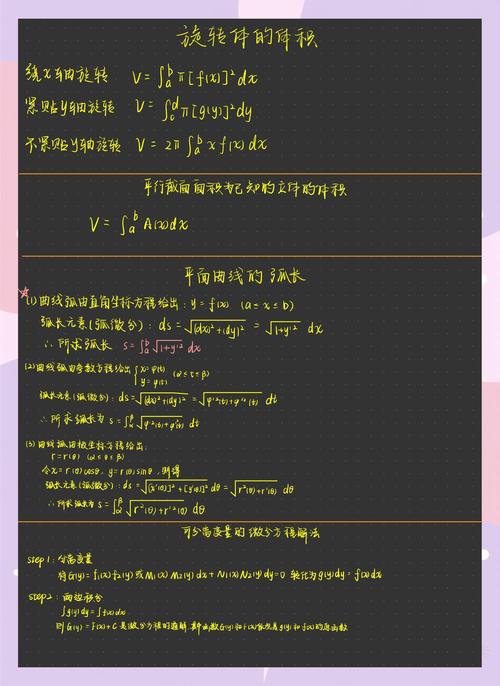 旋转体的体积
绕x轴旋转 V = ∫ₐᵇ π[f(x)]² dx
紧贴y轴旋转 V = ∫_c^d π[g(y)]² dy
不紧贴y轴旋转 V = 2π ∫ₐᵇ x f(x) dx
平行截面面积为已知的立体的体积
V = ∫ₐᵇ A(x) dx
平面曲线的弧长
(1) 曲线弧由直角坐标方程给出: y = f(x) (a ≤ x ≤ b)
弧长元素(弧微分): ds = √((dx)²+(dy)²) = √(1+y'²) dx
∴ 所求弧长 s = ∫ₐᵇ √(1+y'²) dx
(2) 曲线弧由参数方程给出 { x = φ(t)
y = ψ(t) (α ≤ t ≤ β)
弧长元素(弧微分): ds = √((dx)²+(dy)²) = √(φ'²(t)+ψ'²(t)) dt
∴ 所求弧长为 s = ∫_α^β √(φ'²(t)+ψ'²(t)) dt
(3) 曲线弧由极坐标方程给出:
r = r(θ) (α ≤ θ ≤ β)
令x = r(θ)cosθ, y = r(θ)sinθ, 则得
弧长元素(弧微分): ds = √([x'(θ)]²+[y'(θ)]²) dθ = √(r²(θ)+r'²(θ)) dθ
∴ 所求弧长为 s = ∫_α^β √(r²(θ)+r'²(θ)) dθ
可分离变量的微分方程解法
step 1: 分离变量
将 = f₁(x) f₂(y) 或 M₁(x) M₂(y) dx + N₁(x) N₂(y) dy = 0 转化为 g(y) dy = f(x) dx
step 2: 两边积分
∫g(y) dy = ∫f(x) dx
则 G(y) = F(x) + C 是微分方程的通解, 其中函数G(y)和F(x)依次是g(y)和f(x)的原函数